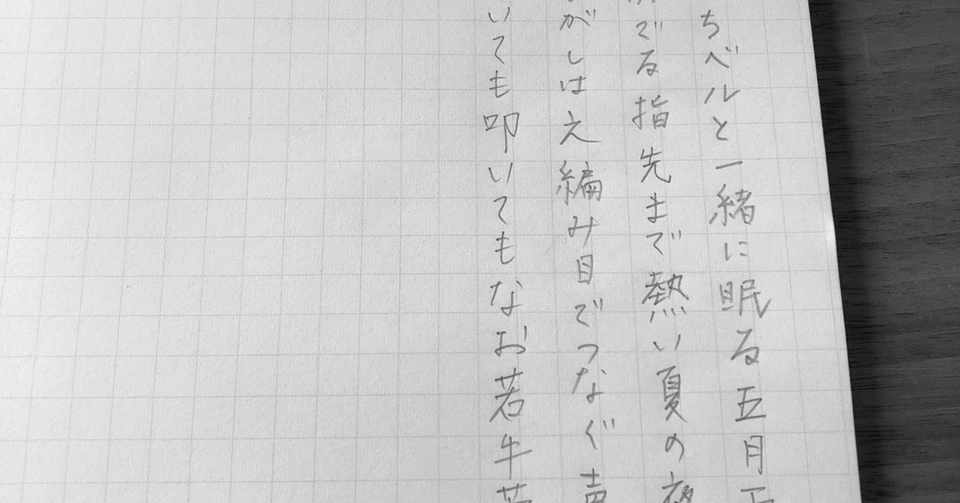 ちベルと一緒に眠る五月
でる指先まで熱い夏の夜
がしはえ編み目でつなぐ声
いても叩いてもなお若牛若